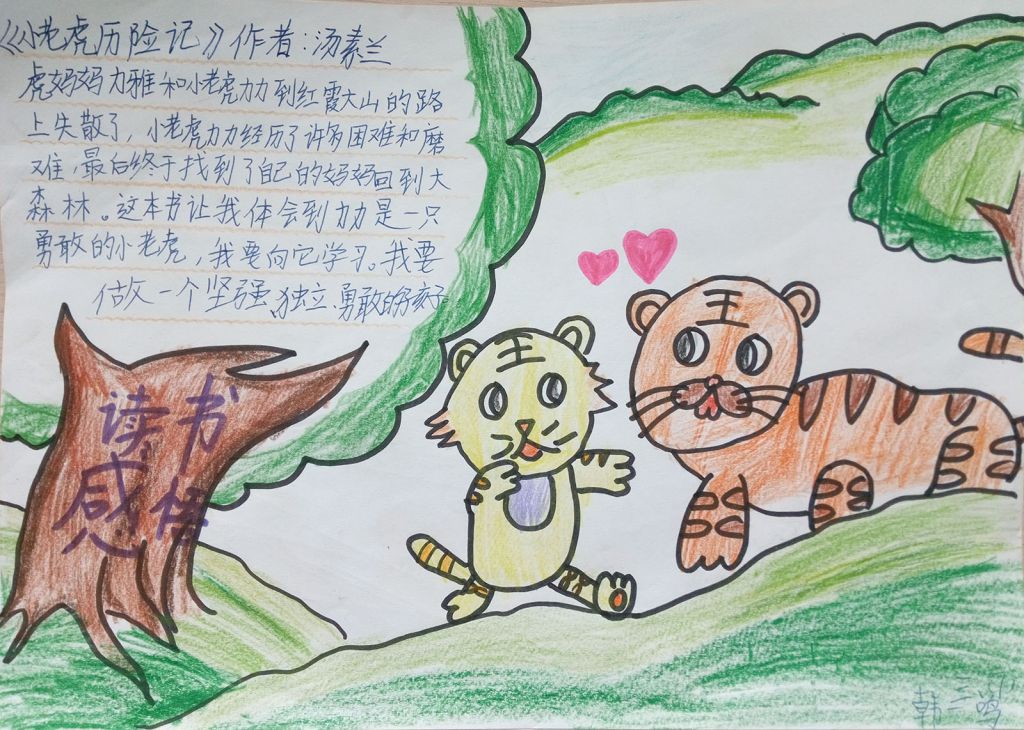 《小老虎历险记》作者：汤素兰
虎妈妈力雅和小老虎力力到红霞大山的路
上失散了，小老虎力力经历了许多困难和磨
难，最后终于找到了自己的妈妈回到大
森林。这本书让我体会到力力是一只
勇敢的小老虎，我要向它学习。我要
做一个坚强、独立、勇敢的孩子
读书
感悟
王
王
韩三鸣